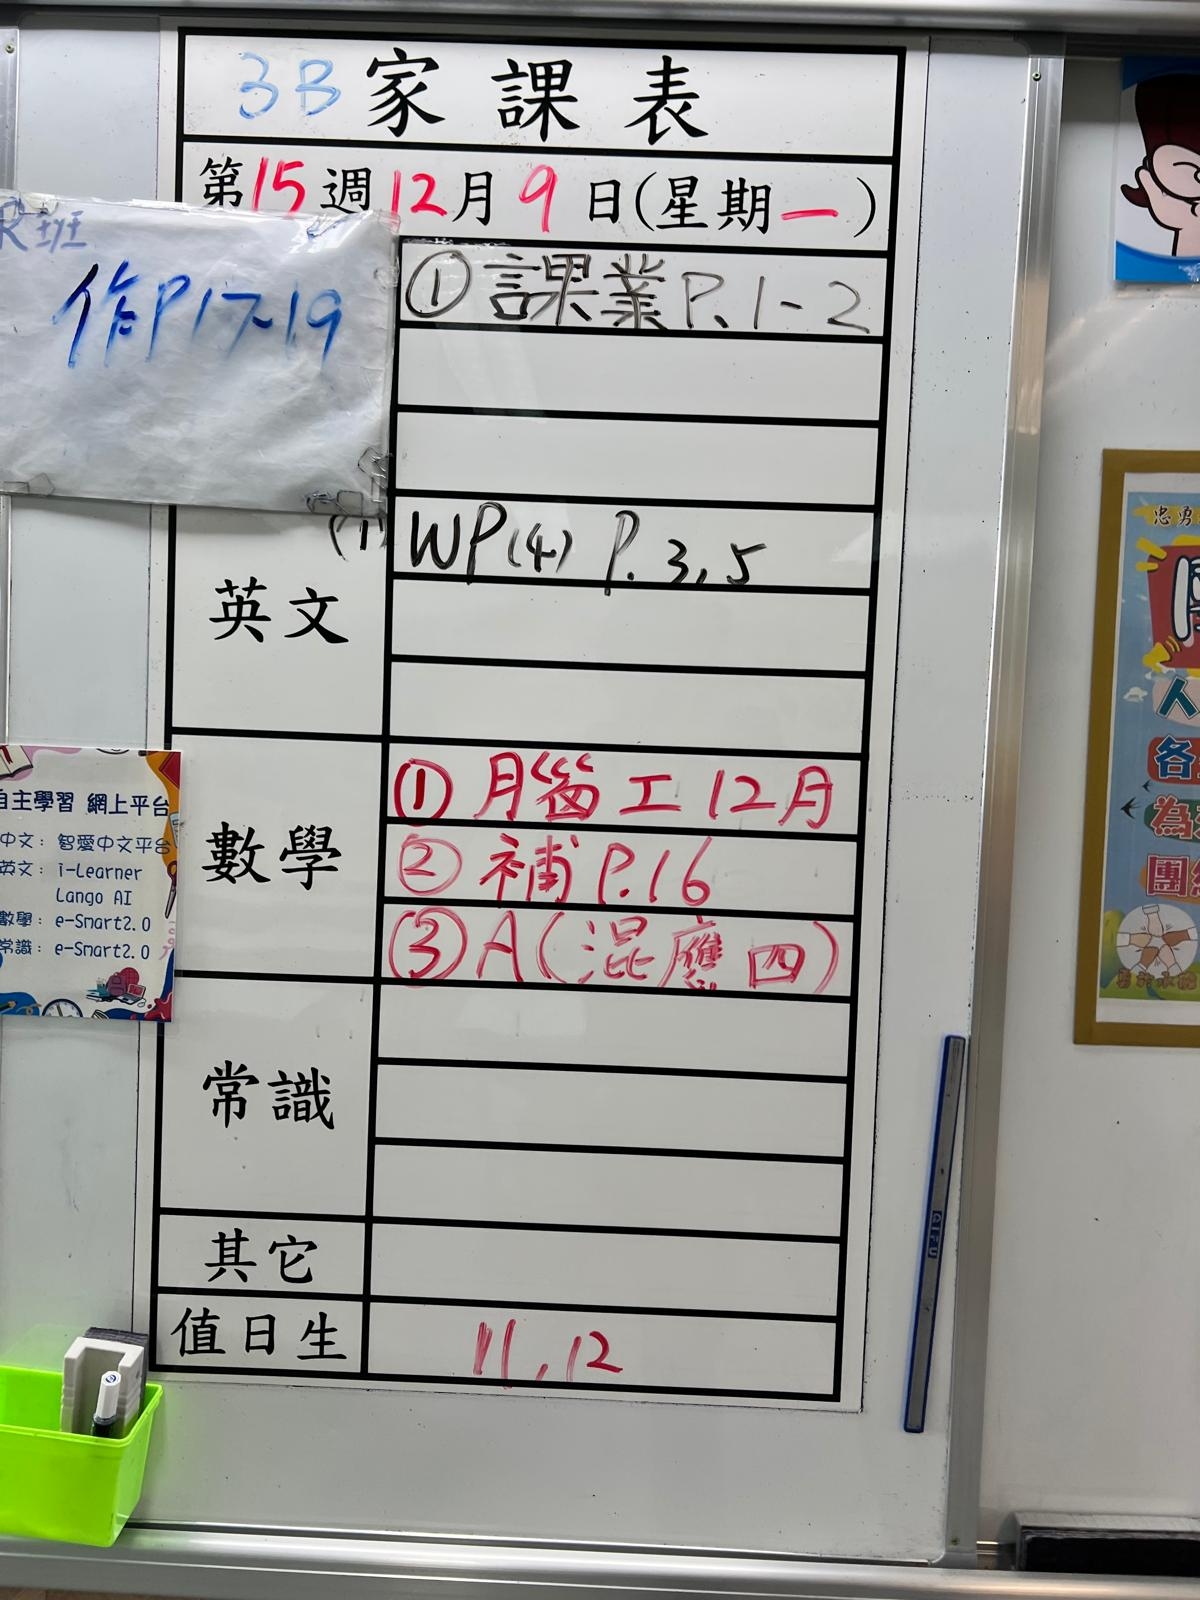 3B 家課表
第15週12月9日(星期一)
R班
作P17-19
① 課業P.1-2
英文
(1) WP(4) P.3,5
數學
① 月腦工12月
② 補P.16
③ A(混應四)
自主學習 網上平台
中文：智愛中文平台
英文：i-Learner
Lango AI
數學：e-Smart2.0
常識：e-Smart2.0
常識
其它
值日生
11,12
忠勇
人
各
為
團